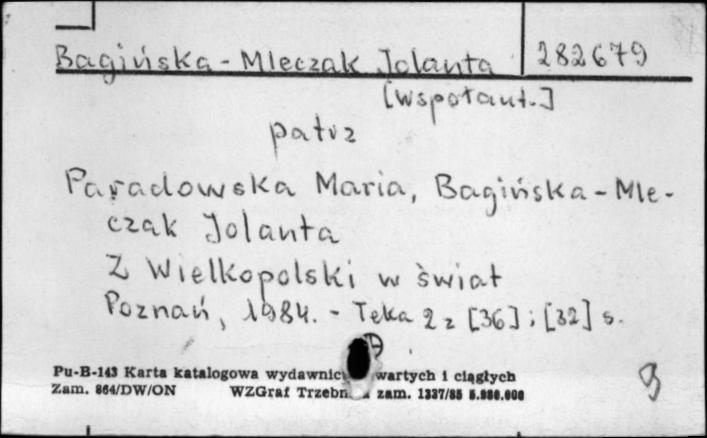 Bagińska - Mleczak Jolanta 282679
[współaut.]
patrz
Paradowska Maria, Bagińska - Mle-
czak Jolanta
Z Wielkopolski w świat
Poznań, 1984. - Teka 2 z [36] ; [32] s.
Pu-B-143 Karta katalogowa wydawnic wartych i ciągłych
Zam. 864/DW/ON WZGraf Trzebn zam. 1337/85 5.000.000